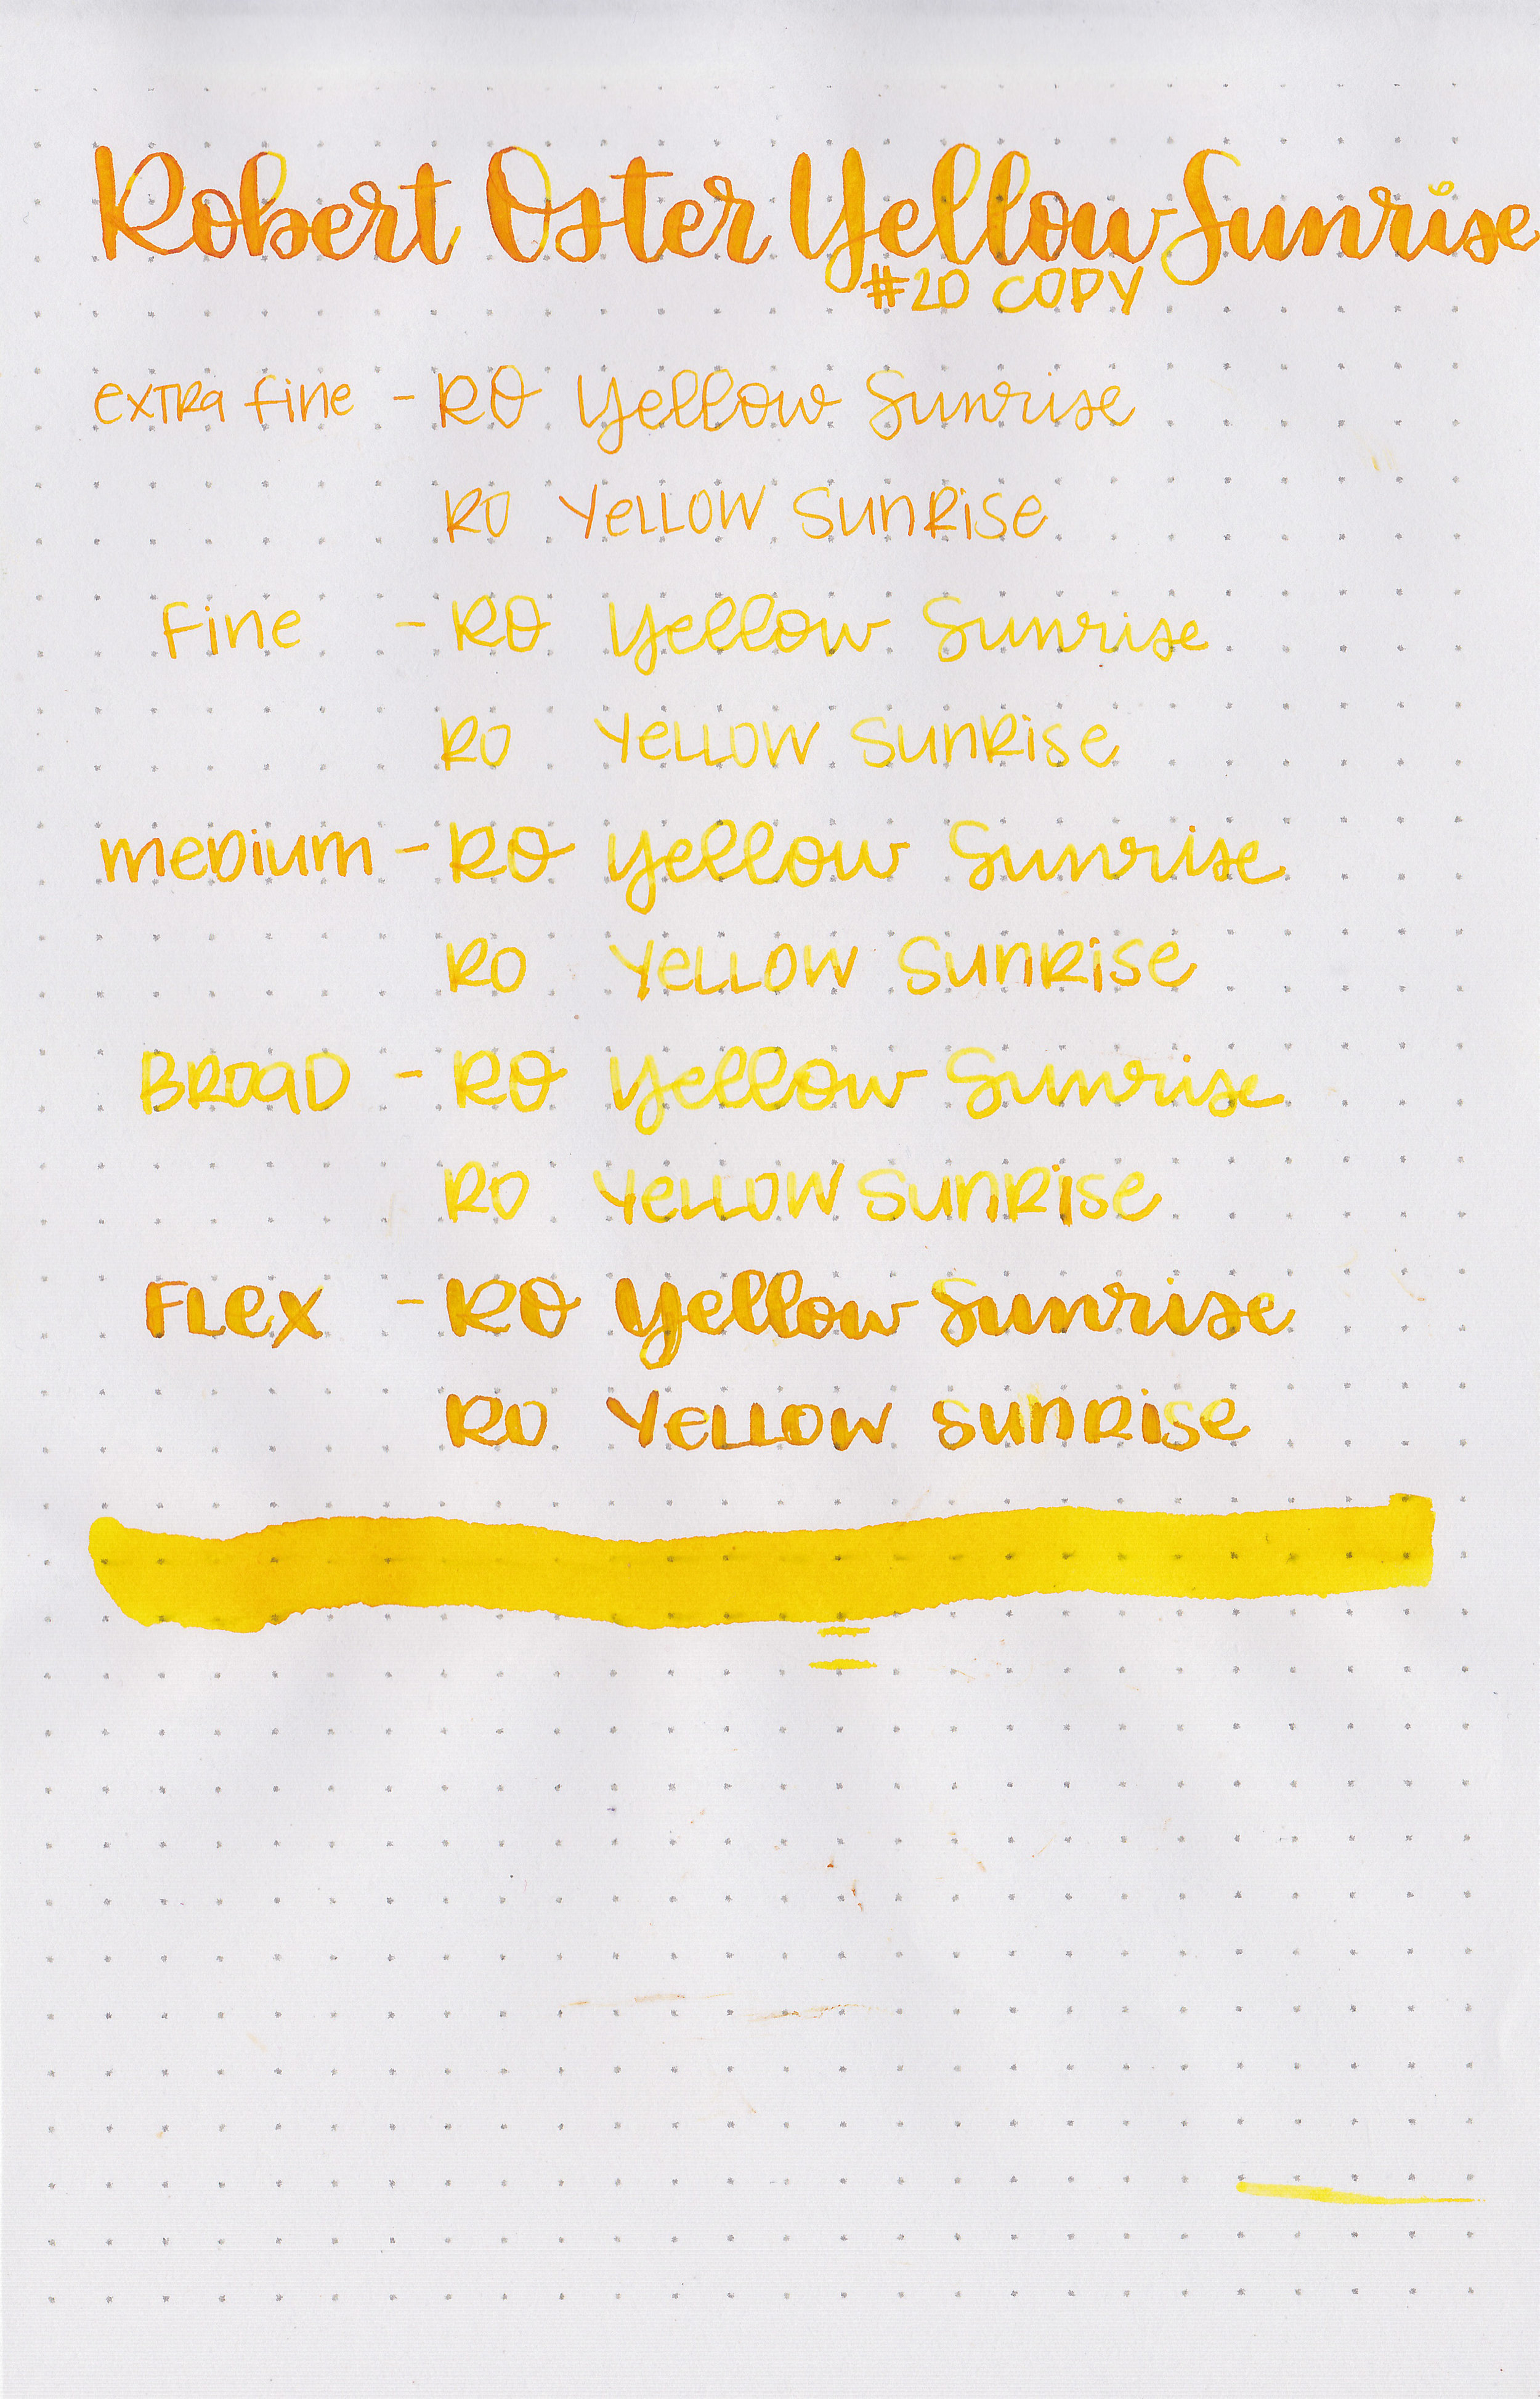 Robert Oster Yellow Sunrise
#20 COPY
extra fine - RO Yellow Sunrise
RO Yellow Sunrise
Fine - RO Yellow Sunrise
RO Yellow Sunrise
medium - RO Yellow Sunrise
RO Yellow Sunrise
Broad - RO Yellow Sunrise
RO Yellow Sunrise
Flex - RO Yellow Sunrise
RO Yellow Sunrise